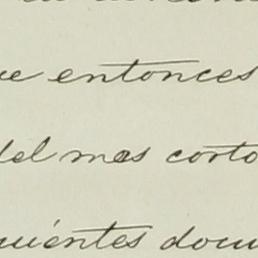 ue entonces
del mas corto
quientes docu